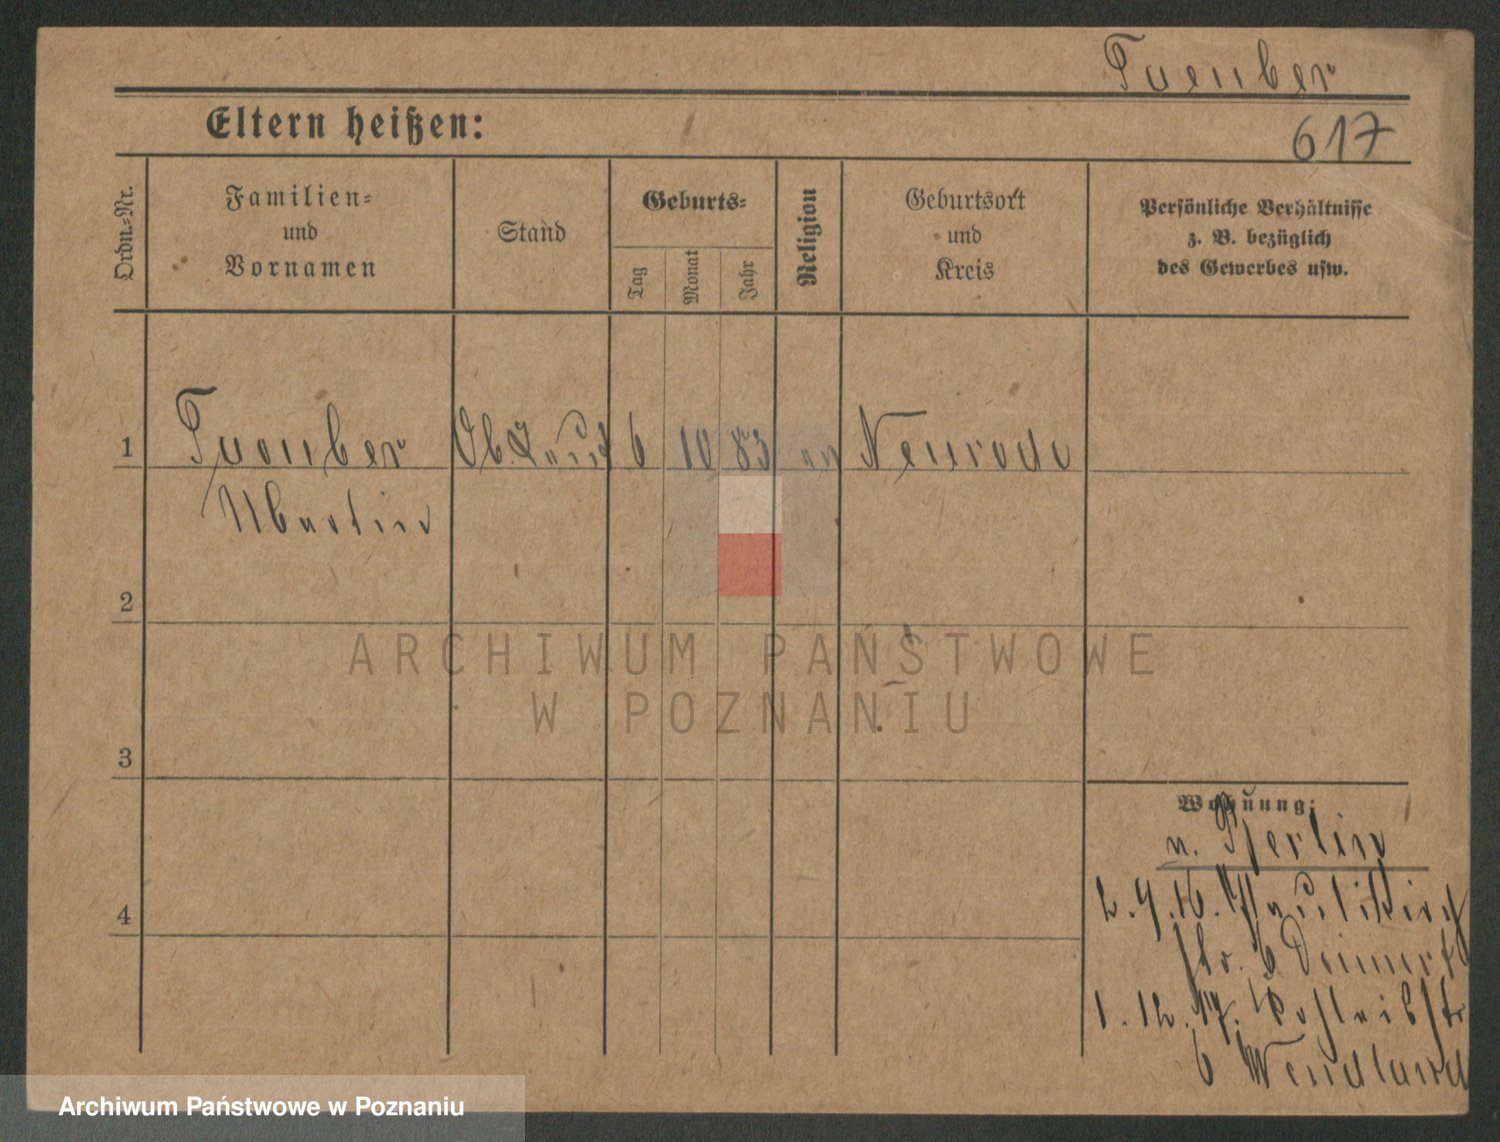 Taeuber
Eltern heißen:
617
Ordn.-Nr.
Familien-
und
Vornamen
Stand
Geburts-
Tag
Monat
Jahr
Religion
Geburtsort
und
Kreis
Persönliche Verhältnisse
z. B. bezüglich
des Gewerbes usw.
1
Taeuber
6
10
83
Neurode
Martin
2
3
4
ARCHIWUM PAŃSTWOWE
W POZNANIU
Wohnung:
v. Berlin
2.9.16. Paulikirch
str. 6
1.12.17.
6 Wendland
Archiwum Państwowe w Poznaniu